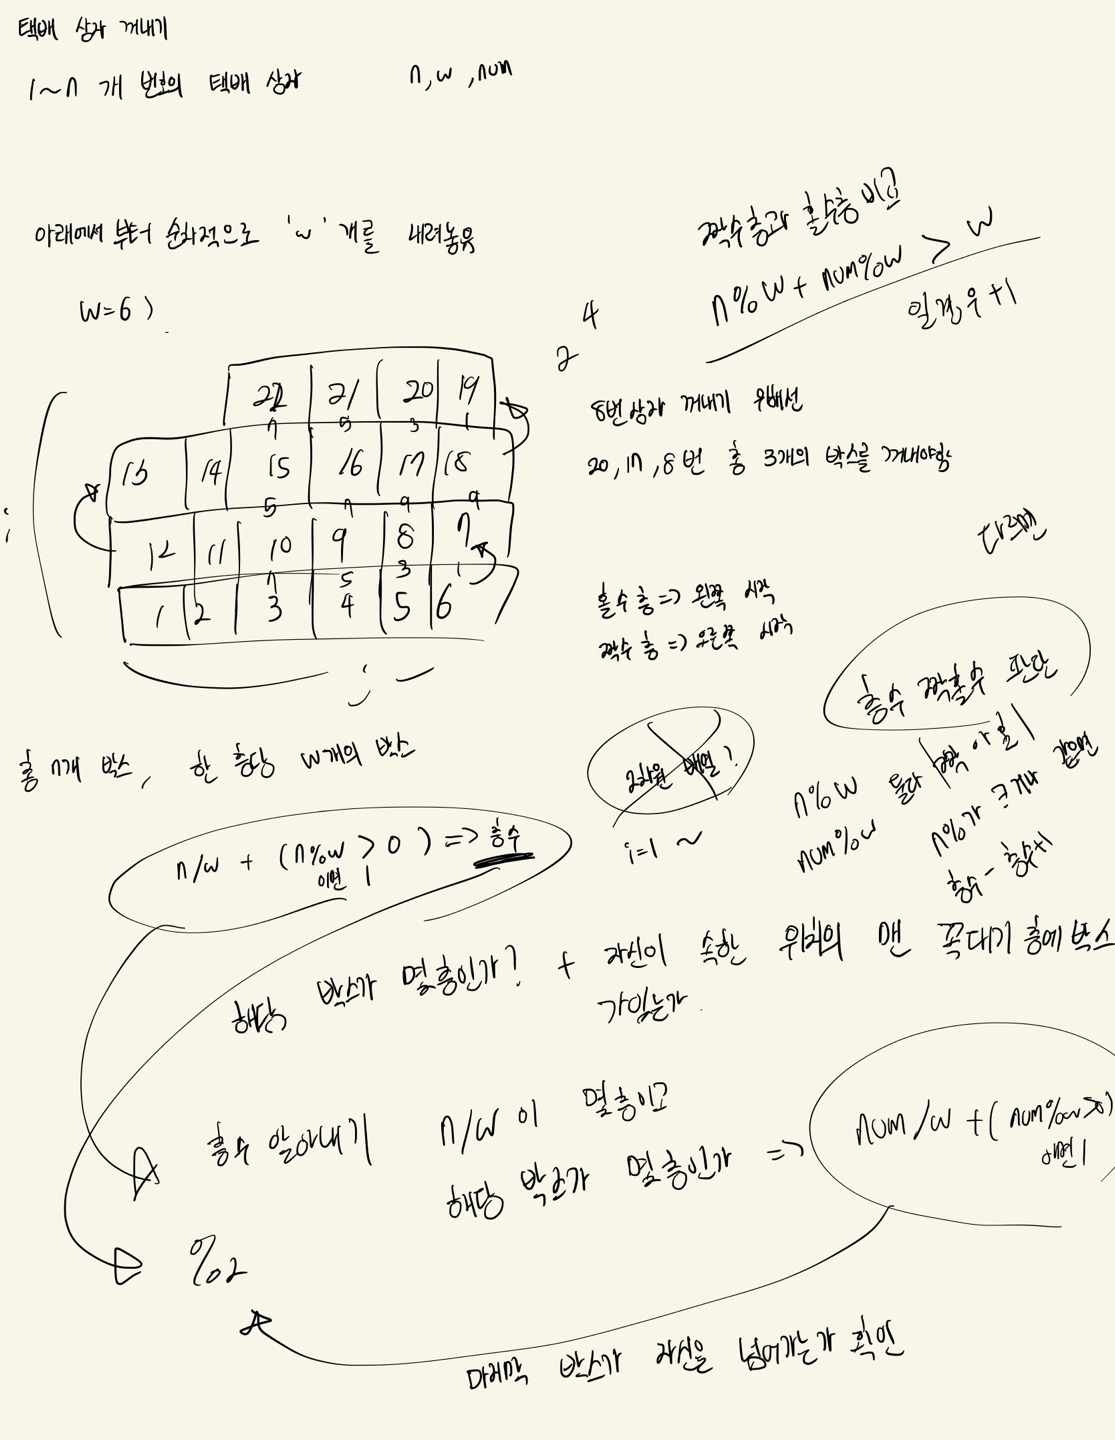 택배 상자 꺼내기
1~n 개 번호의 택배 상자 n, w, num
아래에서 부터 순차적으로 'w' 개를 내려놓음
w=6)
짝수층과 홀수층 비교
n%w + num%w > w
일 경우 +1
4
2
22 21 20 19
7 5 3 1
13 14 15 16 17 18
5 7 9 9
12 11 10 9 8 7
7 5 3 1
1 2 3 4 5 6
8번상자 꺼내기 위해선
20, 17, 8번 총 3개의 박스를 꺼내야함
홀수 층 => 왼쪽 시작
짝수 층 => 오른쪽 시작
다르면
층수 짝홀수 판단
총 n개 박스, 한 층당 w개의 박스
2차원 배열?
i=1 ~
n%w 둘다
num%w
같으면
n%가 크거나
층수 - 층수+1
n/w + (n%w > 0) => 층수
이면 1
해당 박스가 몇층인가? + 자신이 속한 위치의 맨 꼭대기 층에 박스
가있는가.
층수 알아내기 n/w 이 몇층이고
해당 박스가 몇층인가 =>
num/w + (num%w>0)
이면 1
%2
마지막 박스가 자신을 넘어가는가 확인